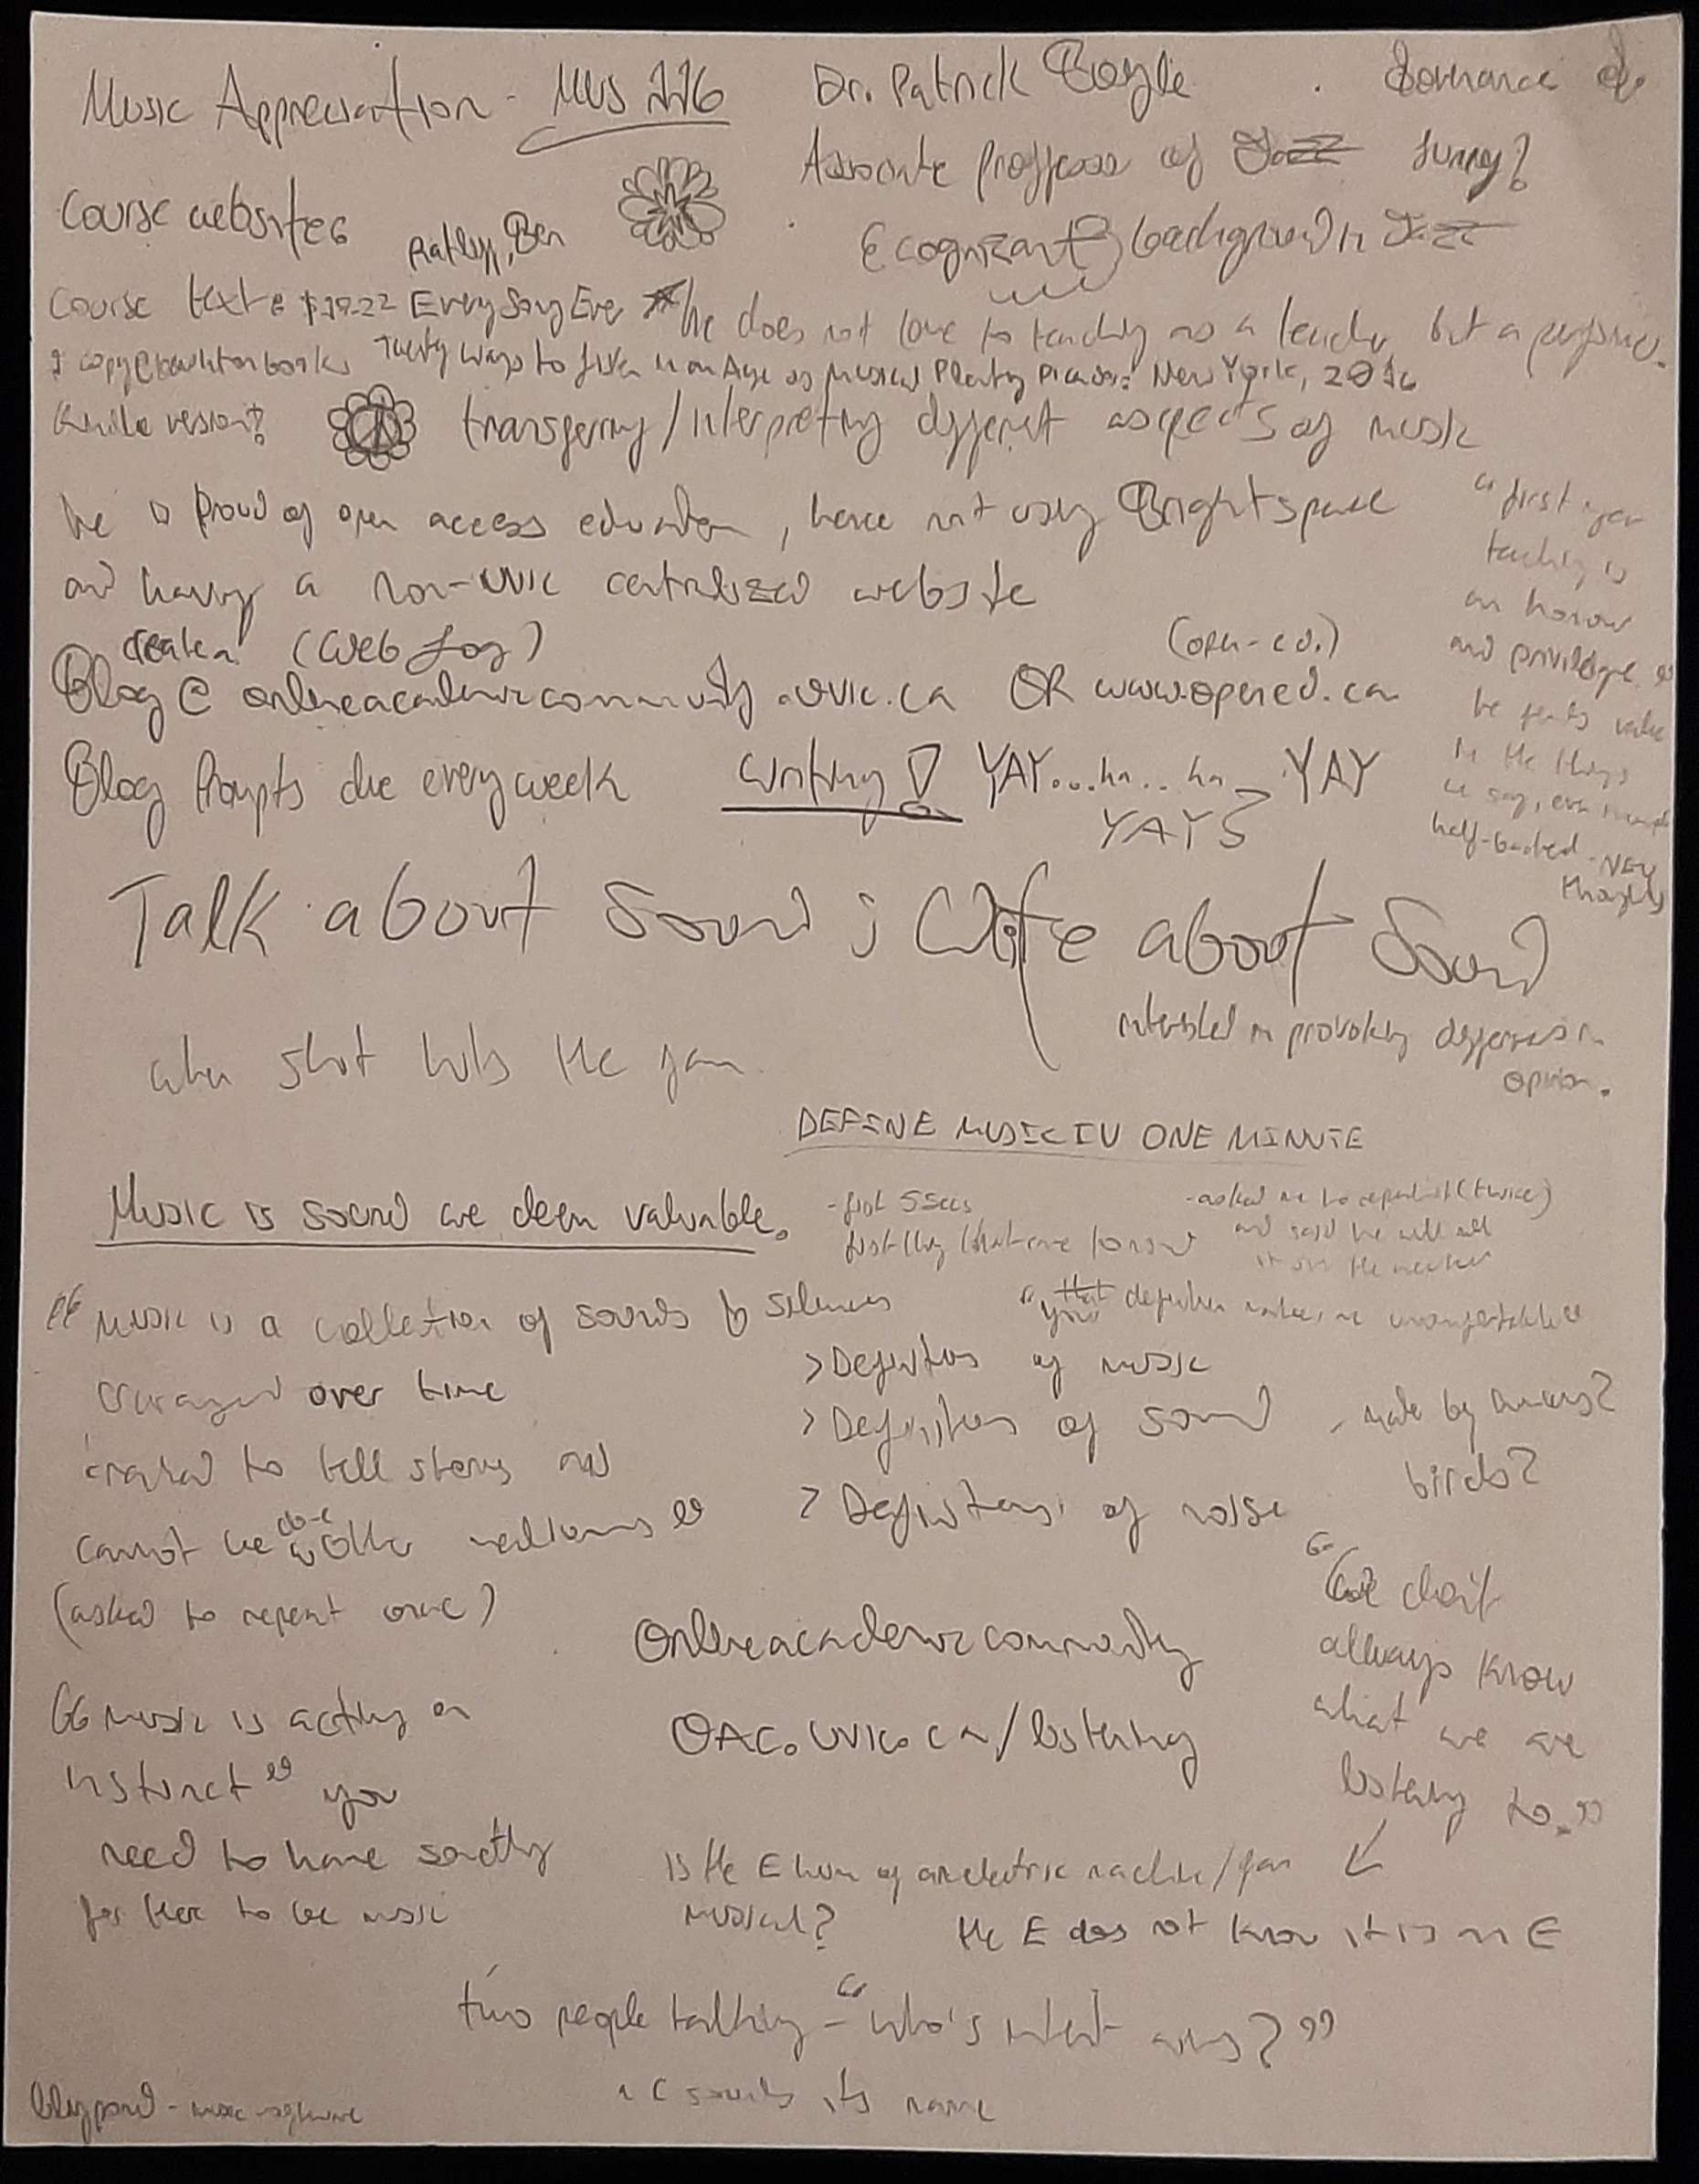 Music Appreciation - MUS 116
Dr. Patrick Boyle
Associate professor of Jazz funny?
Course websites
Ratliff, Ben
& cognizant background in Jazz
Course text $19-22 Every Song Ever
he does not love to teaching as a teacher but a performer.
1 copy @ bookstore
Twenty Ways to Listen in an Age of Musical Plenty Picador: New York, 2016
Kindle version?
transferring/interpreting different aspects of music
he is proud of open access education, hence not using Brightspace
and having a non-UVIC centralized website
create a (Web Log)
(open-ed.)
Blog @ onlineacademiccommunity.uvic.ca OR www.opened.ca
Blog Prompts due every week writing! YAY...ha..ha YAY
YAYS
"first year
teaching is
an honour
and privilege"
he finds value
in the things
we say, even
half-baked - NEW
thoughts
Talk about Sound; Write about Sound
interested in provoking differences in
opinion.
when shit hits the fan
DEFINE MUSIC IN ONE MINUTE
Music is sound we deem valuable.
- first 5 secs
first thing that came to mind
- asked me to repeat it (twice)
and said he will
"that your definition makes me uncomfortable"
"music is a collection of sounds & silences
arranged over time
created to tell stories and
cannot be other mediums"
(asked to repeat once)
> Definitions of music
> Definitions of sound - made by humans?
birds?
> Definitions of noise
"we don't
always know
what we are
listening to."
Onlineacademiccommunity
OAC.uvic.ca/listening
"music is acting on
instinct" you
need to have something
for there to be music
Is the E hum of an electric machine/fan
musical?
the E does not know it is an E
two people talking - "who's intent wins?"
a C sounds its name
lilypond - music software